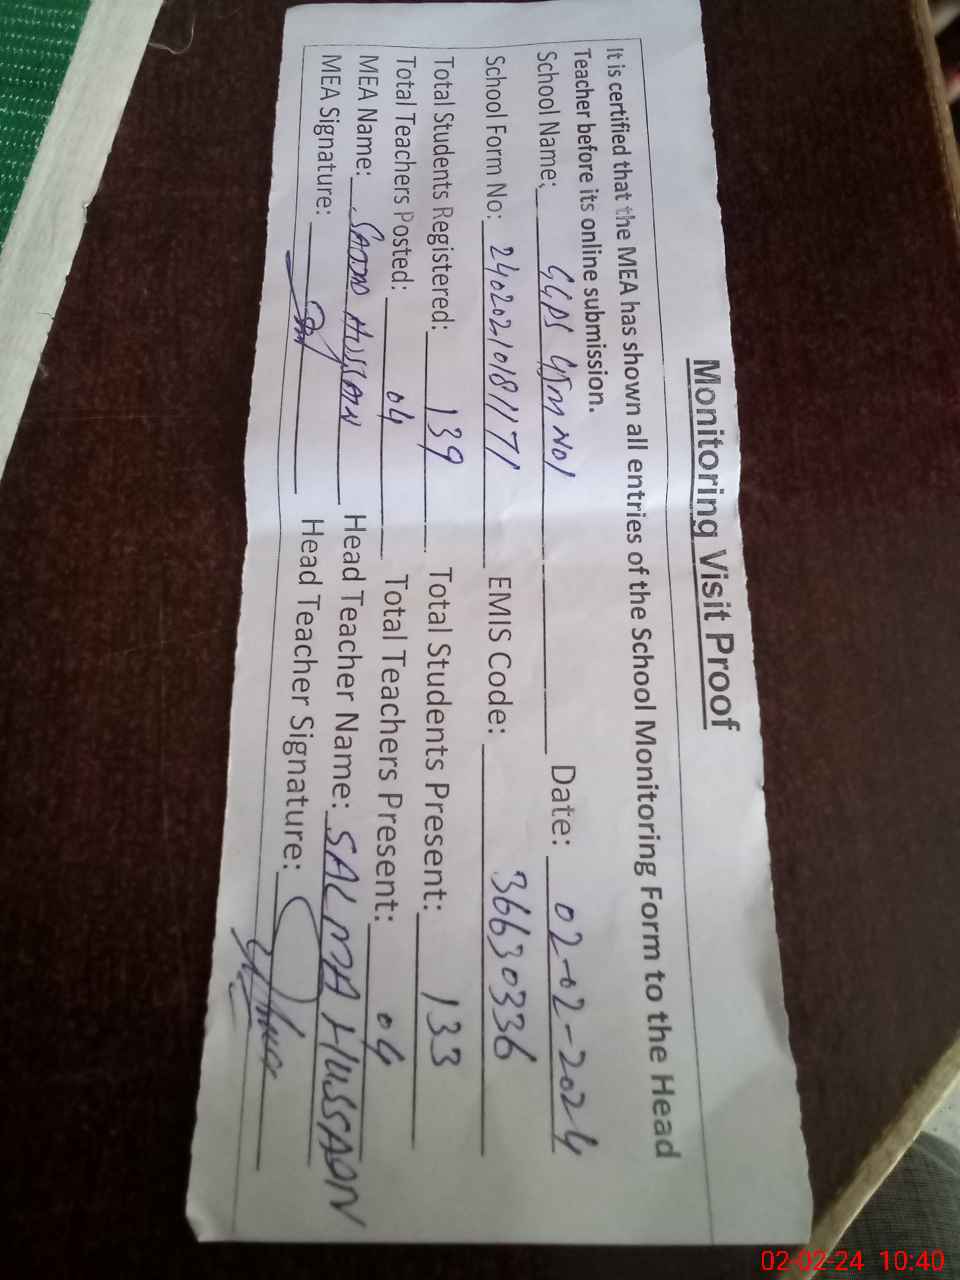 Monitoring Visit Proof
It is certified that the MEA has shown all entries of the School Monitoring Form to the Head
Teacher before its online submission.
School Name: GGPS GSM NO1 Date: 02-02-2024
School Form No: 24020210181171 EMIS Code: 36630336
Total Students Registered: 139 Total Students Present: 133
Total Teachers Posted: 04 Total Teachers Present: 04
MEA Name: HUSSAIN Head Teacher Name: SALMA HUSSAIN
MEA Signature: Head Teacher Signature:
02-02-24 10:40